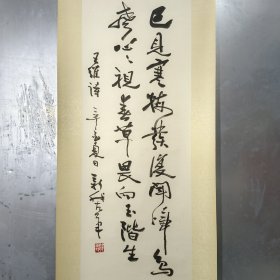 已見寒梅發復聞啼鳥
聲心〻視春草畏向玉階生
王維詩 年夏日